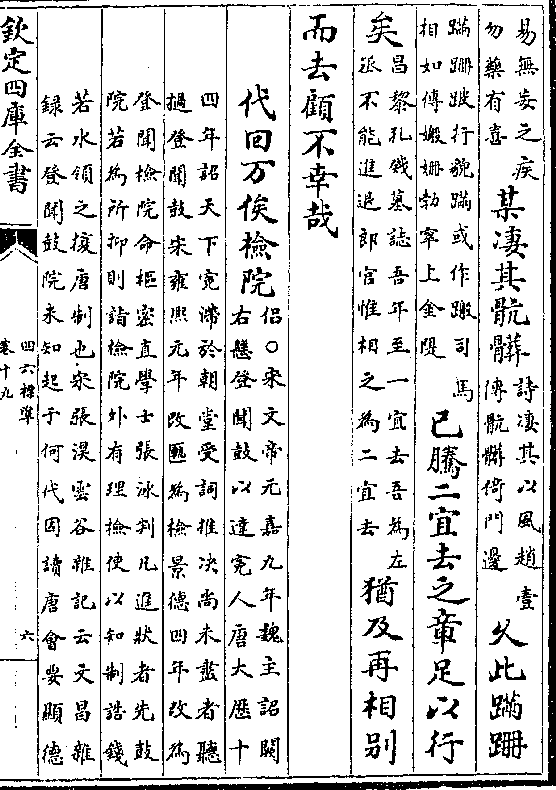 易無妄之疾
勿藥有喜
某凄其骯髒
詩凄其以風趙壹
傳骯髒倚門邊
久此蹣跚
蹣跚跛行貌蹣或作蹣司馬
相如傳媻姍勃窣上金隄
已騰二宜去之章足以行
矣
昌黎孔戣墓誌吾年至一宜去吾為左
丞不能進退郎官惟相之為二宜去
猶及再相别
而去顧不幸哉
代回万俟檢院
侣○宋文帝元嘉九年魏主詔闕
右懸登聞鼓以達寃人唐大厯十
四年詔天下寃滯於朝堂受詞推决尚未盡者聽
撾登聞鼓宋雍熙元年改匭為檢景德四年改為
登聞檢院命樞密直學士張泳判凡進狀者先鼓
院若為所抑則詣檢院外有理檢使以知制誥錢
若水領之擬唐制也宋張淏雲谷雜記云文昌雜
録云登聞鼓院未知起于何代因讀唐會要顯德
欽定四庫全書
四六標準
卷十九
六